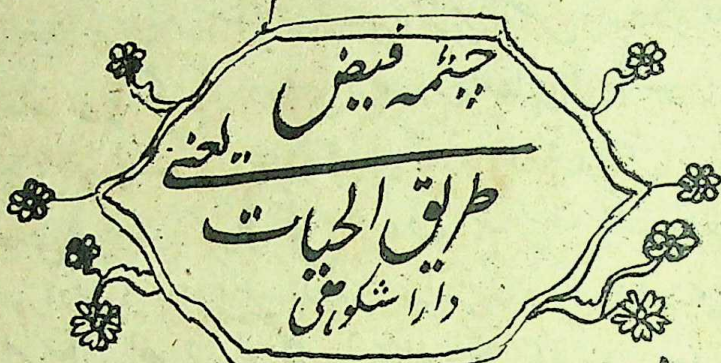 چشمہ فیض
یعنے
طریق الحیات
داراشکوہی